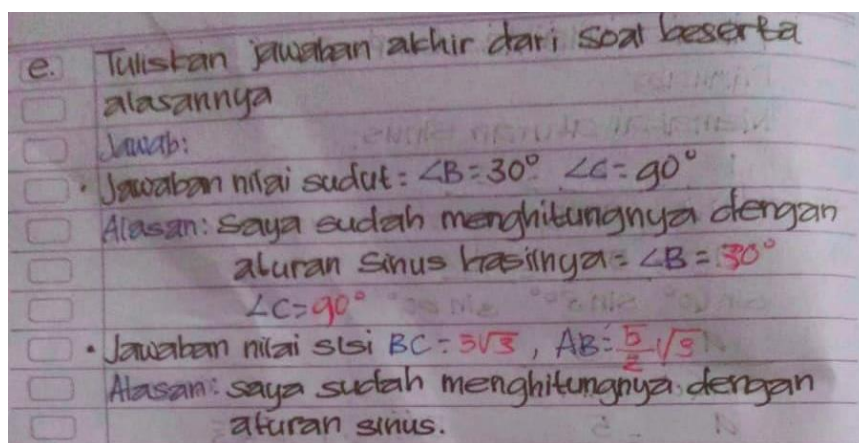 e. Tuliskan jawaban akhir dari soal beserta
alasannya
Jawab:
• Jawaban nilai sudut: ∠B = 30° ∠C = 90°
Alasan: Saya sudah menghitungnya dengan
aturan sinus hasilnya = ∠B = 30°
∠C = 90°
• Jawaban nilai sisi BC = 5√3, AB = 5/2 √3
Alasan: saya sudah menghitungnya dengan
aturan sinus.